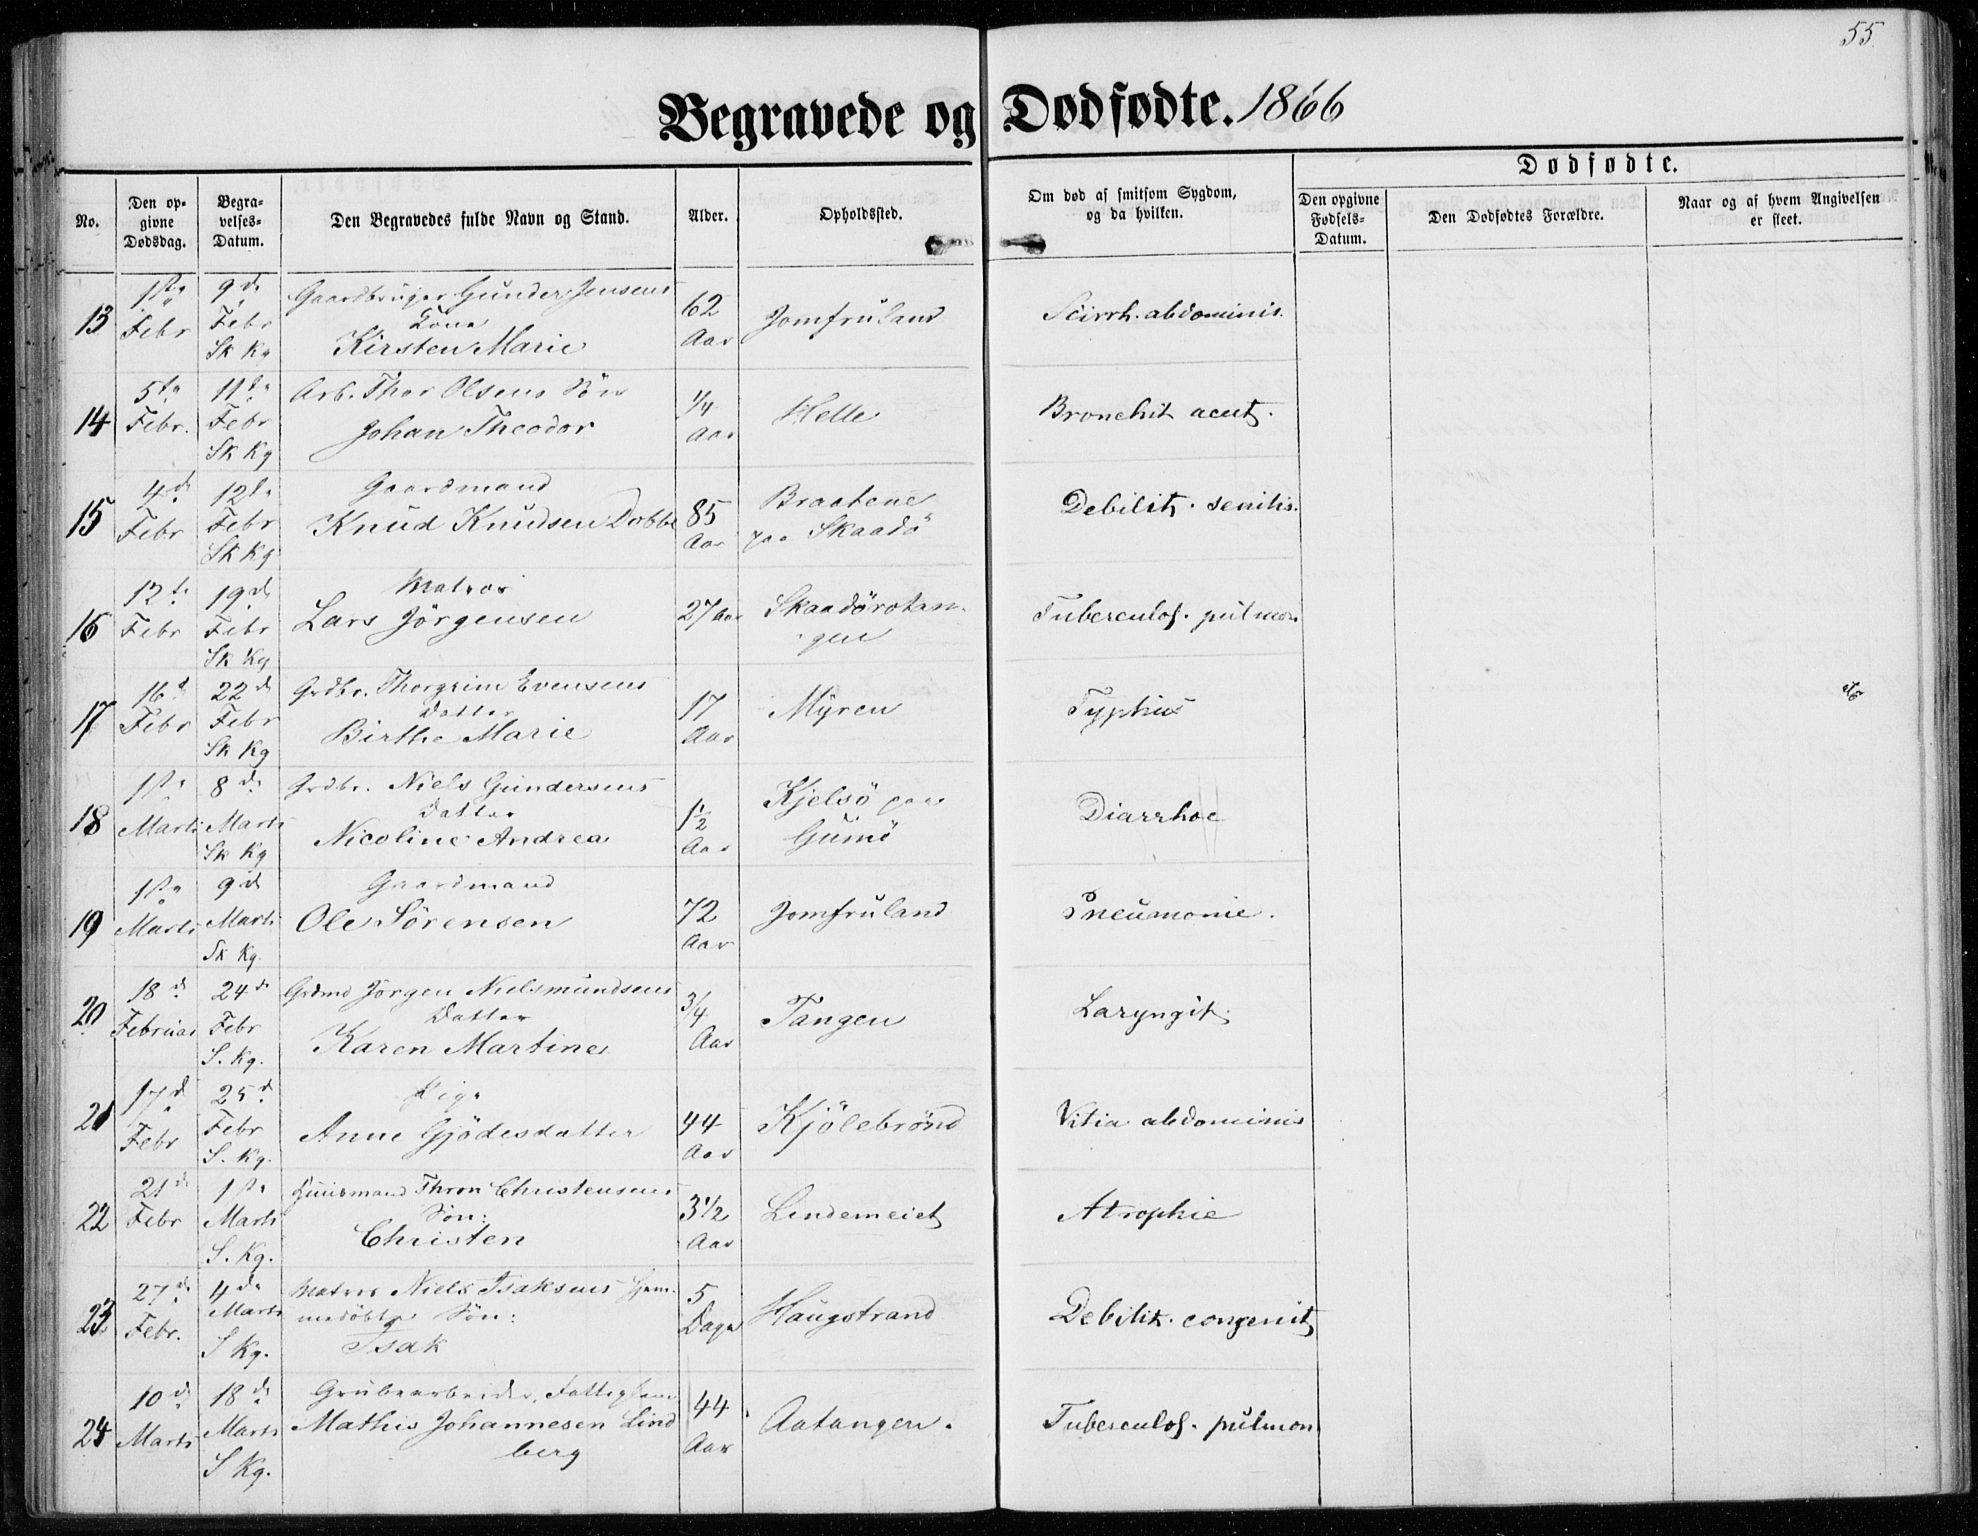 55.
Begravede og Dødfødte. 1866
No.
Den op-
givne
Dødsdag.
Begra-
velses-
Datum.
Den Begravedes fulde Navn og Stand.
Alder.
Opholdssted.
Om død af smitsom Sygdom,
og da hvilken.
Dødfødte.
Den opgivne
Fødsels-
Datum.
Den Dødfødtes Forældre.
Naar og af hvem Angivelsen
er skeet.
13
1ste
Febr
9de
Febr
Sk Kg
Gaardbruger Gunder Jensens
Kone
Kirsten Marie
62
Aar
Jomfruland
Scirrh. abdominis.
14
5te
Febr.
11te
Febr
Sk Kg
Arb. Thor Olsens Søn
Johan Theodor
1/4
Aar
Helle
Bronchit acut.
15
4de
Febr
12te
Febr
Sk Kg
Gaardmand
Knud Knudsen Dobbe
85
Aar
Braatene
paa Skaadö
Debilit. senilis.
16
12te
Febr
19de
Febr
Sk Kg
Matros
Lars Jörgensen
27 Aar
Skaadörotan-
gen
Tuberculos. pulmon.
17
16de
Febr
22de
Febr
Sk Kg
Grdbr. Thorgrim Evensens
Datter
Birthe Marie
17
Aar
Myren
Typhus
18
1ste
Marts
8de
Marts
Sk Kg
Grdbr. Niels Gundersens
Datter
Nicoline Andrea
1 1/2
Aar
Kjelsö paa
Gumö
Diarrhoe
19
1ste
Marts
9de
Marts
Sk Kg.
Gaardmand
Ole Sörensen
72
Aar
Jomfruland
Pneumonie.
20
18de
Februar
24de
Febr
S. Kg.
Grdmd Jörgen Nielsmundsens
Datter
Karen Martine
3/4
Aar
Tangen
Laryngit.
21
17de
Febr
25de
Febr
S. Kg.
Pige
Anne Gjödesdatter
44
Aar
Kjölebrönd
Vitia abdominis
22
21de
Febr
1ste
Marts
S. Kg.
Huusmand Thron Christensens
Søn:
Christen
3 1/2
Aar
Lindemeiet
Atrophie
23
27de
Febr.
4de
Marts
S Kg.
Matros Niels Isaksens hjem-
medöbte Søn:
Isak
5
Dage
Haugstrand
Debilit. congenit
24
10de
Marts
18de
Marts
S Kg.
Grubearbeider, Fattiglem
Mathis Johannesen Lind
berg
44
Aar
Aatangen.
Tuberculos. pulmon